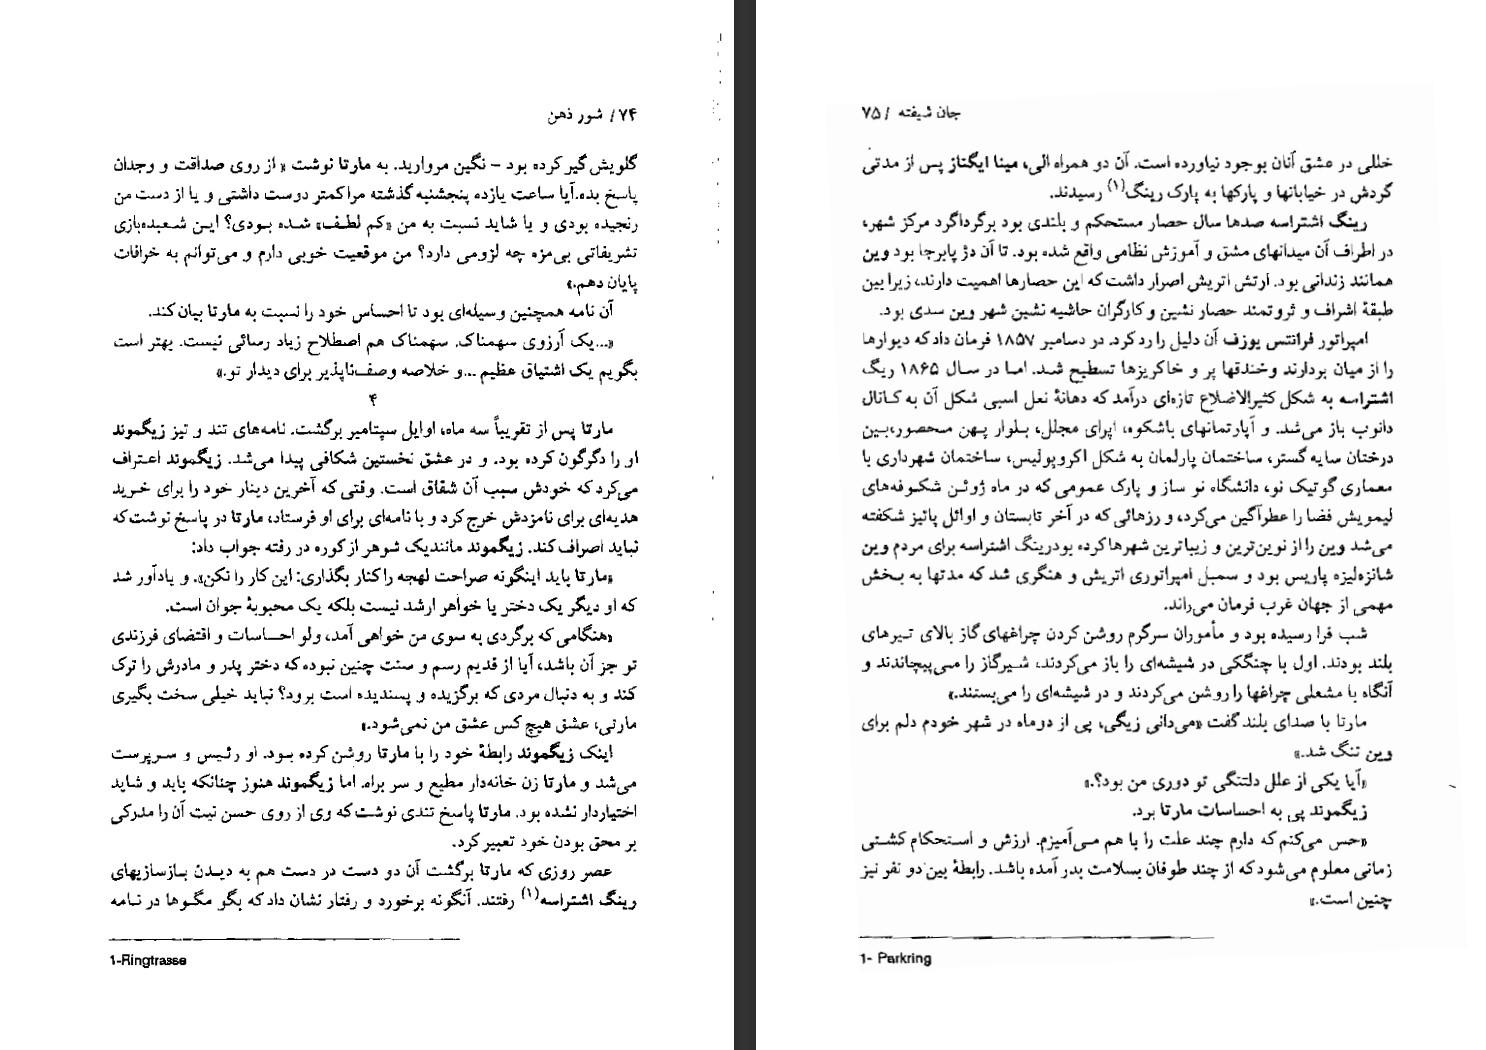 ۷۴ / شور ذهن
گلویش گیر کرده بود – نگین مروارید. به مارتا نوشت « از روی صداقت و وجدان
پاسخ بده.آیا ساعت یازده پنجشنبه گذشته مرا کمتر دوست داشتی و یا از دست من
رنجیده بودی و یا شاید نسبت به من «کم لطف» شده بودی؟ این شعبده‌بازی
تشریفاتی بی‌مزه چه لزومی دارد؟ من موقعیت خوبی دارم و می‌توانم به خرافات
پایان دهم.»
آن نامه همچنین وسیله‌ای بود تا احساس خود را نسبت به مارتا بیان کند.
«...یک آرزوی سهمناک. سهمناک هم اصطلاح زیاد رسائی نیست. بهتر است
بگویم یک اشتیاق عظیم ...و خلاصه وصف‌ناپذیر برای دیدار تو.»
۴
مارتا پس از تقریباً سه ماه، اوایل سپتامبر برگشت. نامه‌های تند و تیز زیگموند
او را دگرگون کرده بود. و در عشق نخستین شکافی پیدا می‌شد. زیگموند اعتراف
می‌کرد که خودش سبب آن شقاق است. وقتی که آخرین دینار خود را برای خرید
هدیه‌ای برای نامزدش خرج کرد و با نامه‌ای برای او فرستاد، مارتا در پاسخ نوشت که
نباید اصراف کند. زیگموند مانندیک شوهر از کوره در رفته جواب داد:
«مارتا باید اینگونه صراحت لهجه را کنار بگذاری: این کار را نکن». و یادآور شد
که او دیگر یک دختر یا خواهر ارشد نیست بلکه یک محبوبهٔ جوان است.
«هنگامی که برگردی به سوی من خواهی آمد، ولو احساسات و اقتضای فرزندی
تو جز آن باشد، آیا از قدیم رسم و سنت چنین نبوده که دختر پدر و مادرش را ترک
کند و به دنبال مردی که برگزیده و پسندیده است برود؟ نباید خیلی سخت بگیری
مارتی، عشق هیچ کس عشق من نمی‌شود.»
اینک زیگموند رابطهٔ خود را با مارتا روشن کرده بود. او رئیس و سرپرست
می‌شد و مارتا زن خانه‌دار مطیع و سر براه. اما زیگموند هنوز چنانکه باید و شاید
اختیاردار نشده بود. مارتا پاسخ تندی نوشت که وی از روی حسن نیت آن را مدرکی
بر محق بودن خود تعبیر کرد.
عصر روزی که مارتا برگشت آن دو دست در دست هم به دیدن بازسازیهای
رینگ اشتراسه(۱) رفتند. آنگونه برخورد و رفتار نشان داد که بگو مگوها در نامه
1-Ringtrasse
جان شیفته / ۷۵
خللی در عشق آنان بوجود نیاورده است. آن دو همراه الی، مینا ایگناز پس از مدتی
گردش در خیابانها و پارکها به پارک رینگ(۱) رسیدند.
رینگ اشتراسه صدها سال حصار مستحکم و بلندی بود برگرداگرد مرکز شهر،
در اطراف آن میدانهای مشق و آموزش نظامی واقع شده بود. تا آن دژ پابرجا بود وین
همانند زندانی بود. ارتش اتریش اصرار داشت که این حصارها اهمیت دارند، زیرا بین
طبقهٔ اشراف و ثروتمند حصار نشین و کارگران حاشیه نشین شهر وین سدی بود.
امپراتور فرانتس یوزف آن دلیل را رد کرد. در دسامبر ۱۸۵۷ فرمان داد که دیوارها
را از میان بردارند وخندقها پر و خاکریزها تسطیح شد. اما در سال ۱۸۶۵ ریگ
اشتراسه به شکل کثیرالاضلاع تازه‌ای درآمد که دهانهٔ نعل اسبی شکل آن به کانال
دانوب باز می‌شد. و آپارتمانهای باشکوه، اپرای مجلل، بلوار پهن محصور،بین
درختان سایه گستر، ساختمان پارلمان به شکل اکروپولیس، ساختمان شهرداری با
معماری گوتیک نو، دانشگاه نو ساز و پارک عمومی که در ماه ژوئن شکوفه‌های
لیمویش فضا را عطرآگین می‌کرد، و رزهائی که در آخر تابستان و اوائل پائیز شکفته
می‌شد وین را از نوین‌ترین و زیباترین شهرها کرده بودرینگ اشتراسه برای مردم وین
شانزه‌لیزه پاریس بود و سمبل امپراتوری اتریش و هنگری شد که مدتها به بخش
مهمی از جهان غرب فرمان می‌راند.
شب فرا رسیده بود و مأموران سرگرم روشن کردن چراغهای گاز بالای تیرهای
بلند بودند. اول با چنگکی در شیشه‌ای را باز می‌کردند، شیرگاز را می‌پیچاندند و
آنگاه با مشعلی چراغها را روشن می‌کردند و در شیشه‌ای را می‌بستند.»
مارتا با صدای بلند گفت «می‌دانی زیگی، پی از دوماه در شهر خودم دلم برای
وین تنگ شد.»
«آیا یکی از علل دلتنگی تو دوری من بود؟.»
زیگموند پی به احساسات مارتا برد.
«حس می‌کنم که دارم چند علت را با هم می‌آمیزم. ارزش و استحکام کشتی
زمانی معلوم می‌شود که از چند طوفان بسلامت بدر آمده باشد. رابطهٔ بین دو نفر نیز
چنین است.»
1- Parkring